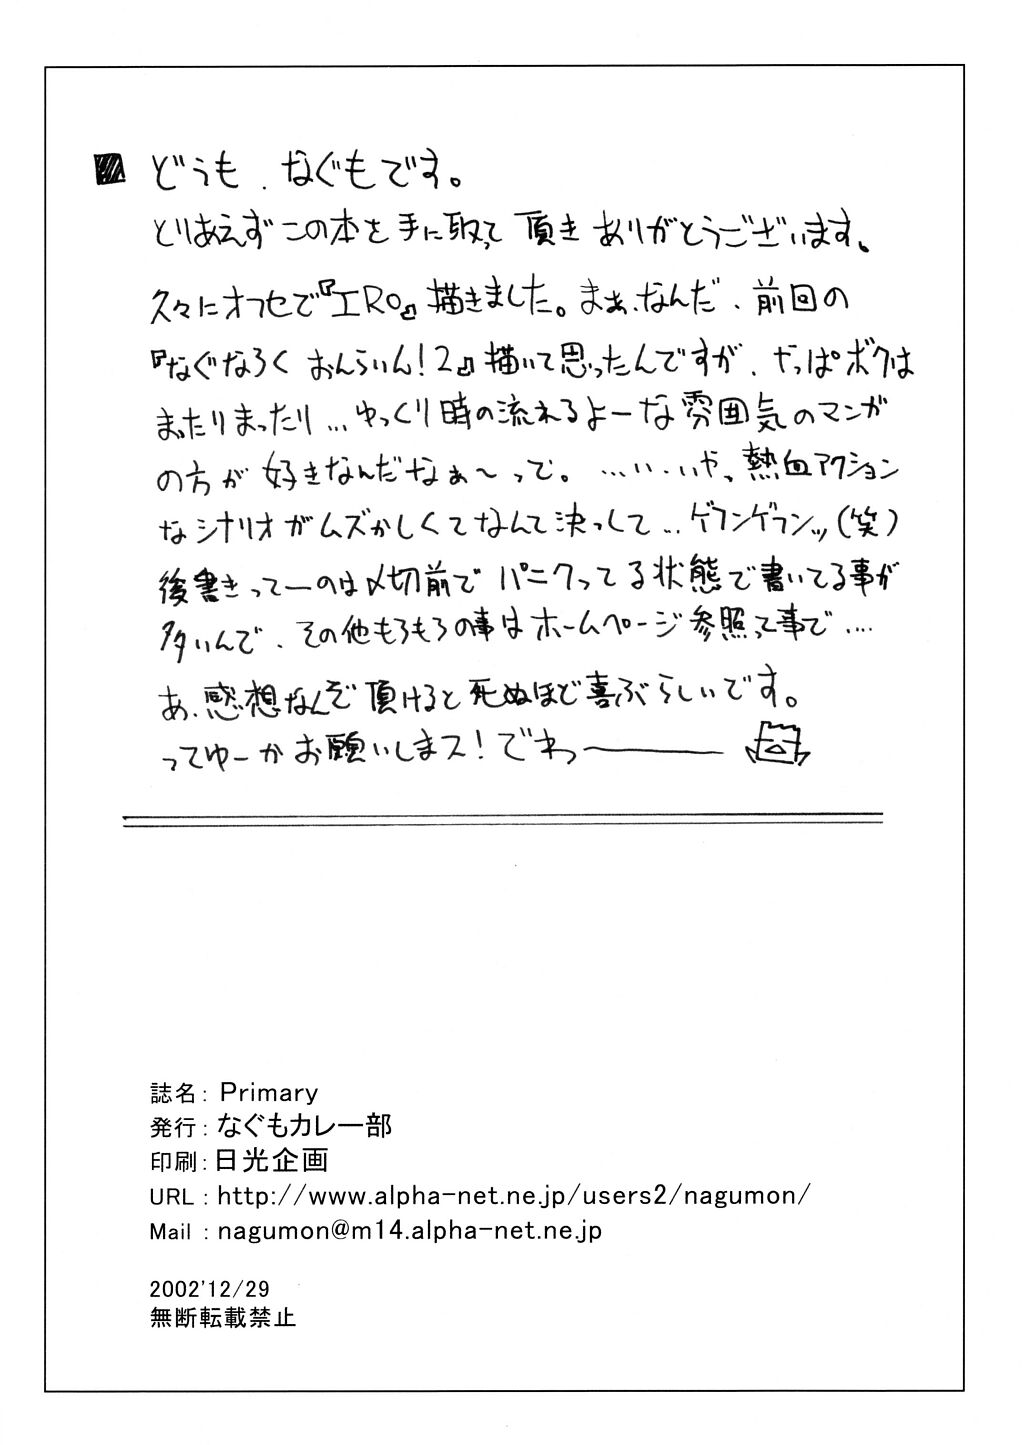 ■ どうも、なぐもです。
とりあえずこの本を手に取って頂きありがとうございます。
久々にオフセで『エRO』描きました。まぁ、なんだ、前回の
『なぐなろく おんらいん!2』描いて思ったんですが、やっぱボクは
まったりまったり…ゆっくり時の流れるよーな雰囲気のマンガ
の方が好きなんだなぁ〜って。……いや、熱血アクション
なシナリオがムズかしくてなんて決っして…ゲフンゲフンッ(笑)
後書きってーのは〆切前でパニクってる状態で書いてる事が
多いんで、その他もろもろの事はホームページ参照って事で….
あ、感想なんぞ頂けると死ぬほど喜ぶらしいです。
ってゆーかお願いしまス!でわっ———
誌名: Primary
発行: なぐもカレー部
印刷: 日光企画
URL : http://www.alpha-net.ne.jp/users2/nagumon/
Mail : nagumon@m14.alpha-net.ne.jp
2002'12/29
無断転載禁止